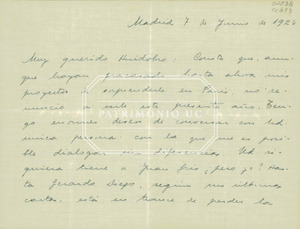 Madrid 7 de Junio de 192
Muy querido Huidobro: Conste que, aun-
que hayan fracasado hasta ahora mis
proyectos sorprenderle en París, no re-
nuncio a este este presente año. Ten-
go enormes deseos de conversar con Ud
única persona con la que me es posi-
ble dialogar sin diferencias. Ud si-
quiera tiene a Juan Gris, ¿pero yo? Has-
ta Gerardo Diego, según mis últimas
cartas, está en trance de perder la
PATRIMONIO UC